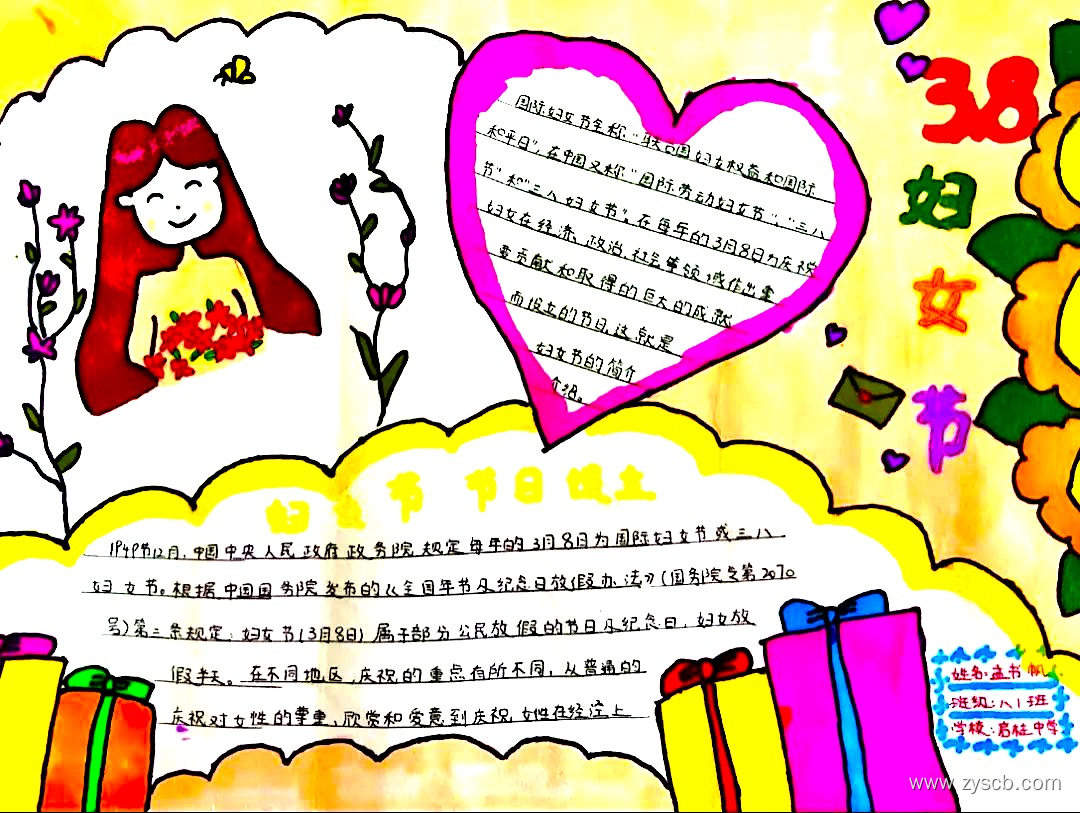 国际妇女节全称“联合国妇女权益和国际
和平日”,在中国又称“国际劳动妇女节”,“三八
节”和“三八妇女节”。在每年的3月8日为庆祝
妇女在经济、政治、社会等领域作出重
要贡献和取得的巨大的成就
而设立的节日,这就是
妇女节的简介
介绍。
3.8
妇
女
节
妇女节 节日设立
1949年12月,中国中央人民政府政务院规定每年的3月8日为国际妇女节或三八
妇女节。根据中国国务院发布的《全国年节及纪念日放假办法》(国务院令第2070
号)第三条规定:妇女节(3月8日)属于部分公民放假的节日及纪念日,妇女放
假半天。在不同地区,庆祝的重点有所不同,从普通的
庆祝对女性的尊重、欣赏和爱意到庆祝女性在经济上
姓名:孟书帆
班级:八1班
学校:启桂中学
www.zyscb.com